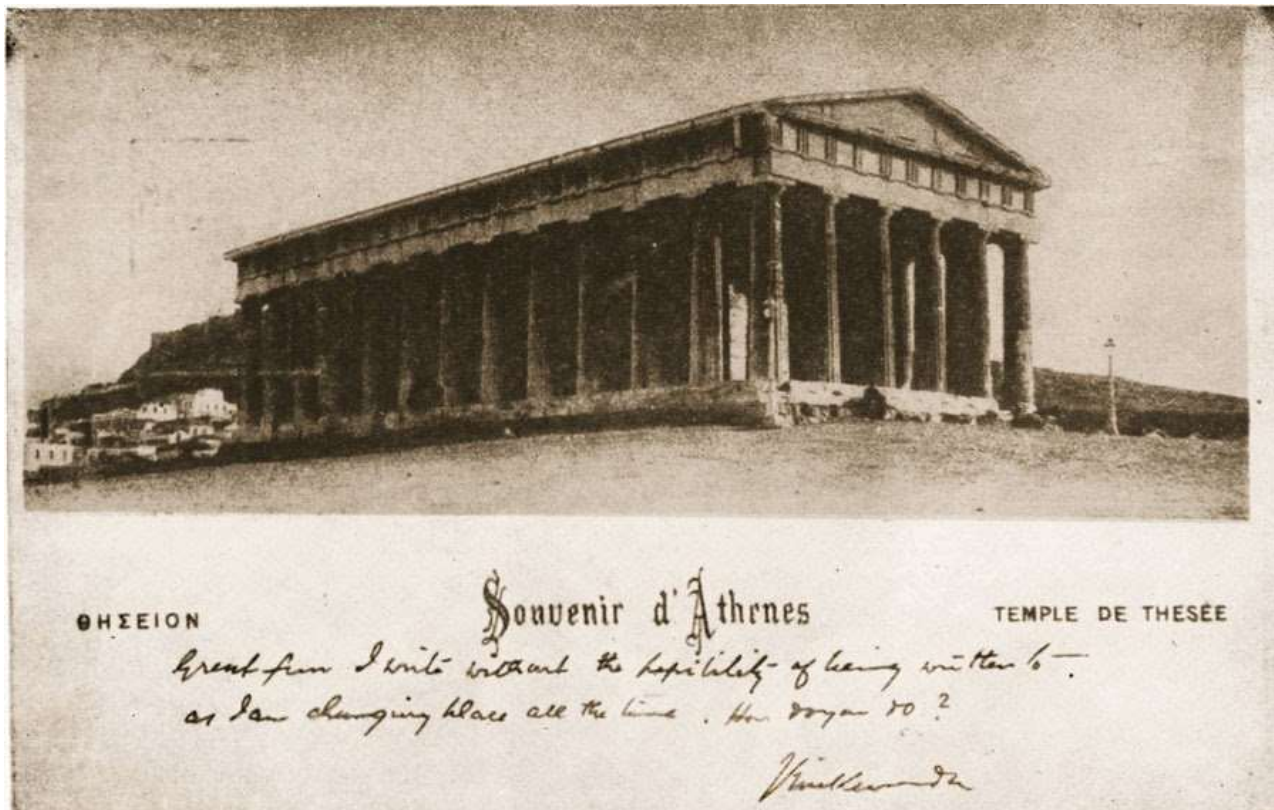 ΘΗΣΕΙΟΝ
Souvenir d'Athènes
TEMPLE DE THESÉE
Great fun I write without the possibility of being written to
as I am changing place all the time. How do you do?
Vivekananda